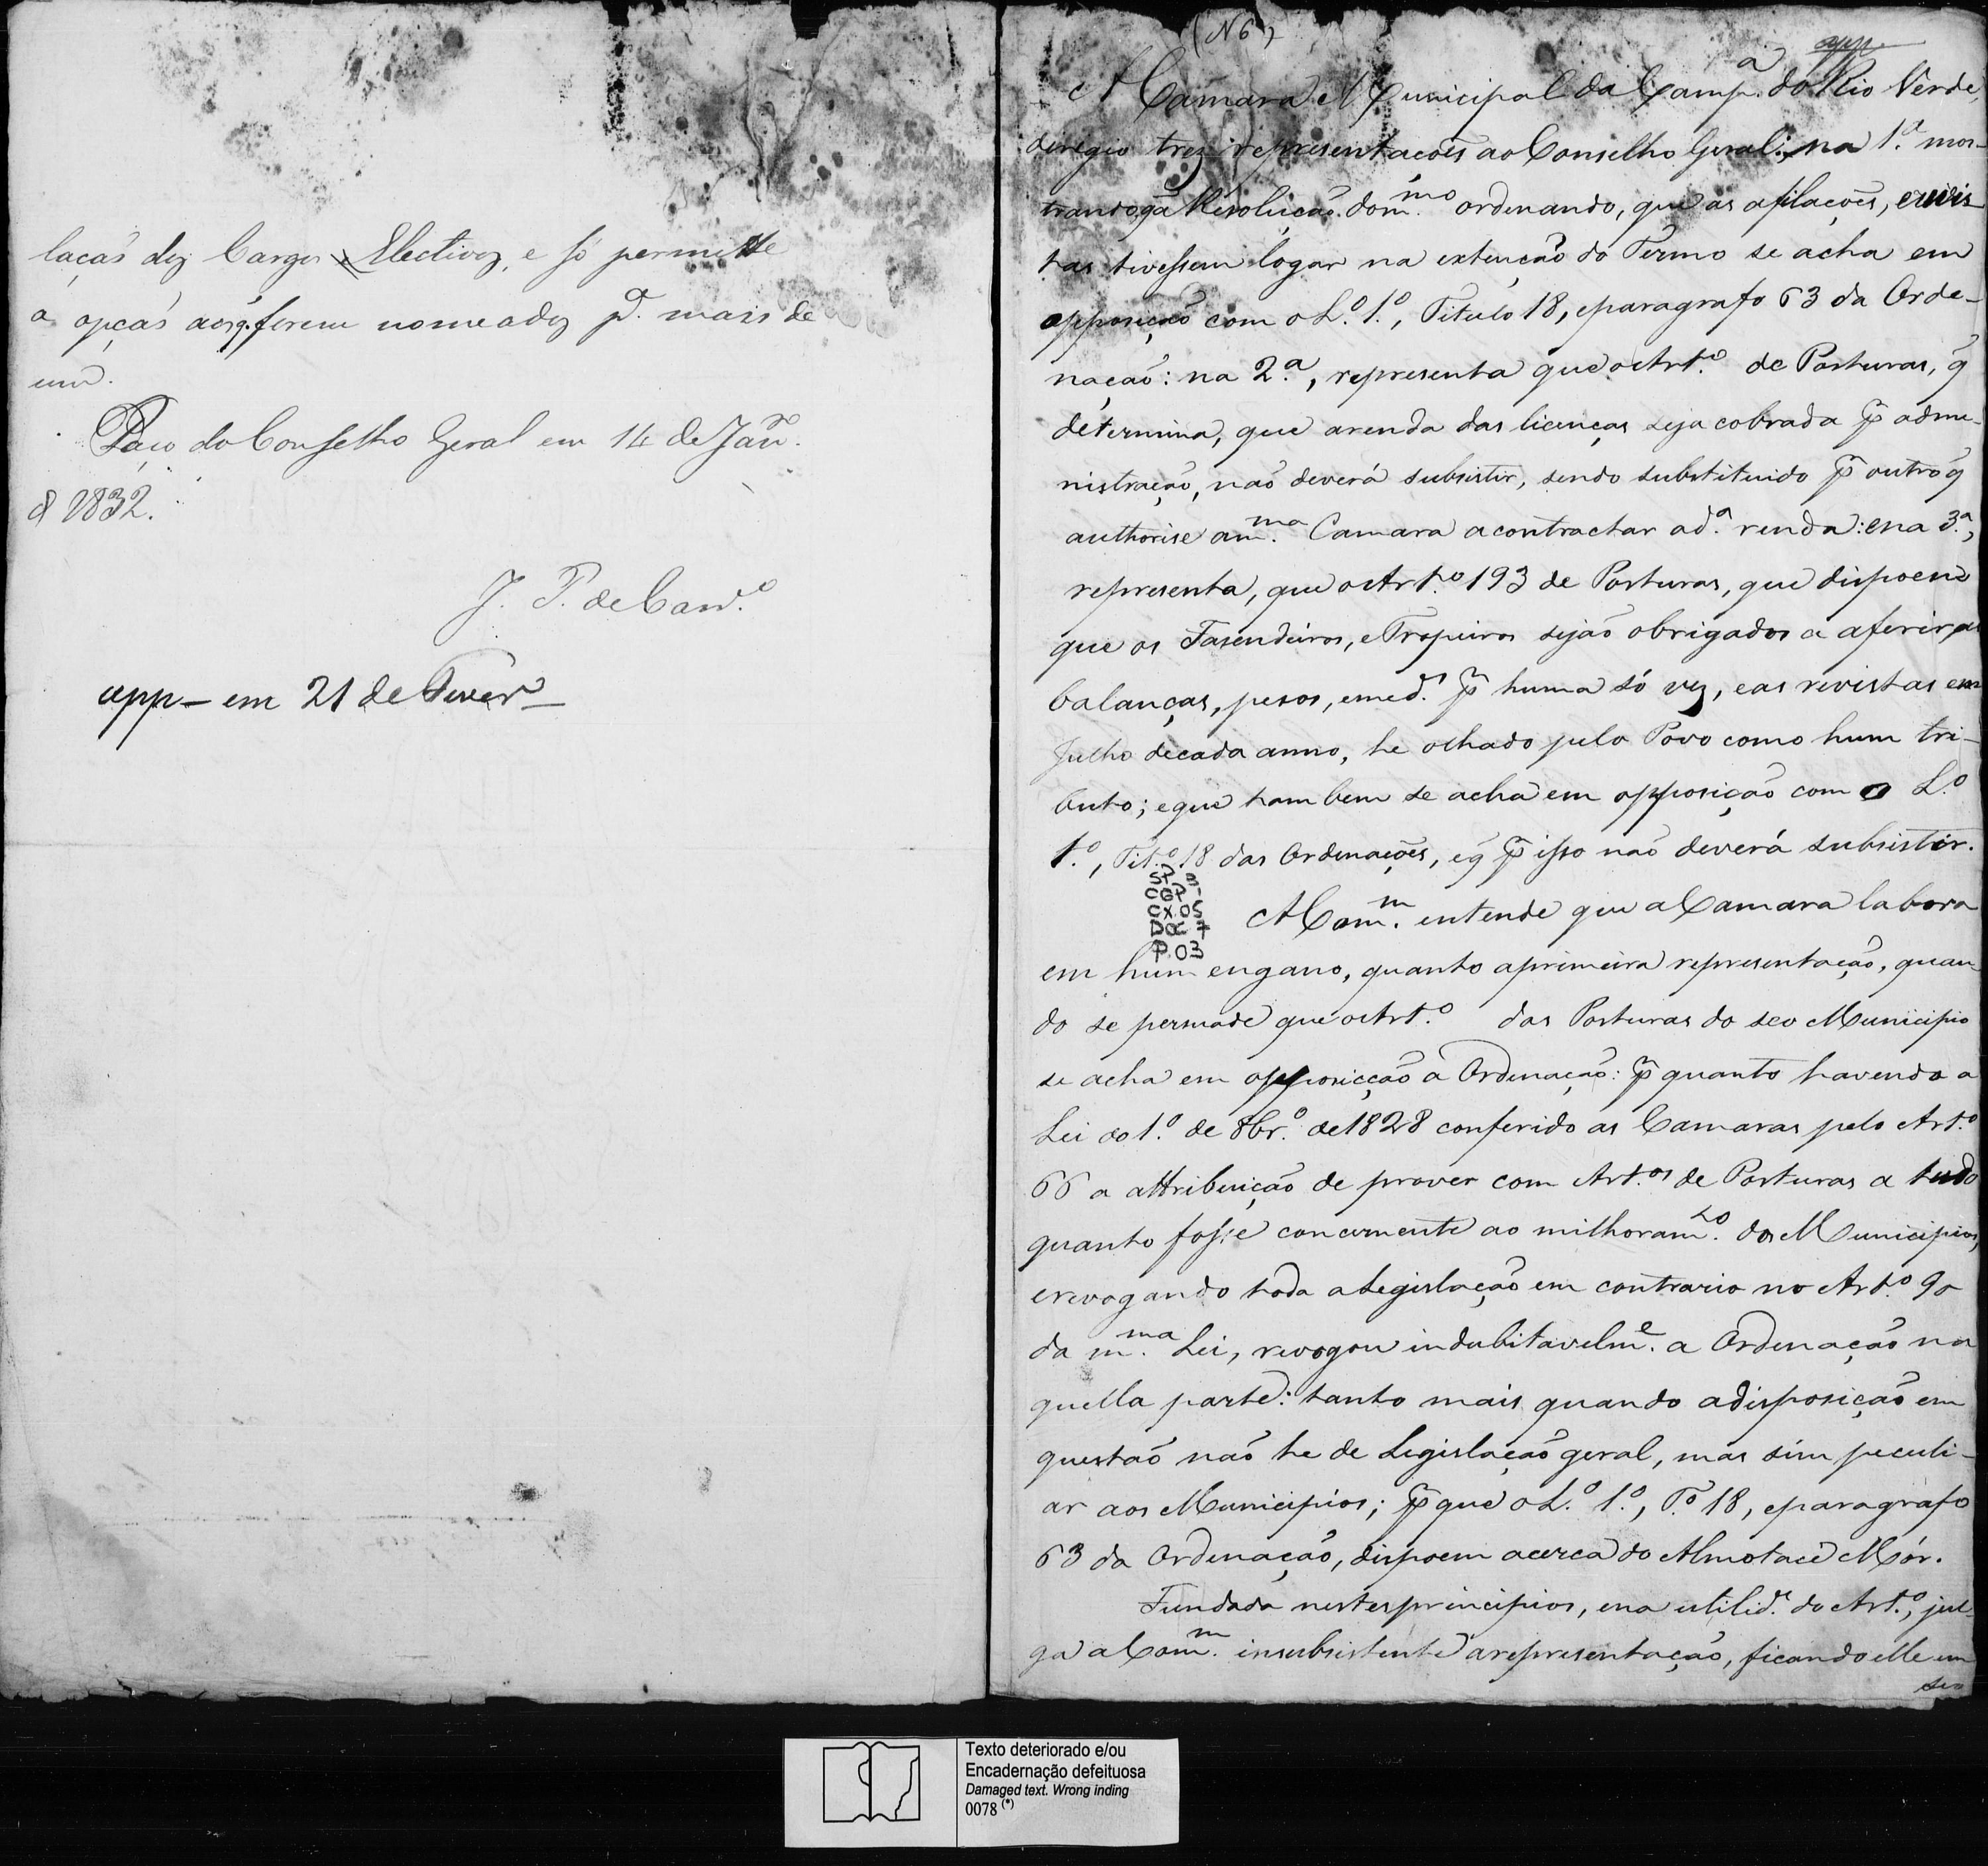 lacaõ dos Cargos Electivos, e só permitte
a opçaõ aos q. forem nomeados pª. mais de
um.
Paço do Conselho Geral em 14 de Janrº.
d 1832.
J. P. de Carvº.
app - em 21 de Feverº
(N 6)
app.
A Camara Municipal da Campª. do Rio Verde,
derigio tres representações ao Conselho Geral: na 1ª. mos-
trando q̃ a Resolução do mmo. ordenando, que as afilações, e revis
tas tivessem logar na extenção do Termo se acha em
opposição com o L.º 1.º, Titulo 18, e paragrafo 63 da Orde-
nação: na 2.ª, representa que o Art.º de Posturas, q̃
determina, que a renda das licenças seja cobrada p̃ admi-
nistração, não deverá subsistir, sendo substituido p̃ outro q̃
authorise a mma. Camara a contractar a d.ª renda: e na 3.ª,
representa, que o Art.º 193 de Posturas, que dispoem
que os Fasendeiros, e Tropeiros sejão obrigados a aferir as
balanças, pesos, e med.s p̃ huma só vez, e as revistas em
Julho de cada anno, he olhado pelo Povo como hum tri-
buto; e que tambem se acha em opposição com o L.º
1.º, Tit.º 18 das Ordenações, e q̃ p̃ isso não deverá subsistir.
SP 3-
CGP
CX.05
DOC 7
P.03
A Comm. entende que a Camara labora
em hum engano, quanto a primeira representação, quan
do se persuade que o Art.º das Posturas do seo Municipio
se acha em opposicção a Ordenação: p̃ quanto havendo a
Lei do 1.º de 8br.º de 1828 conferido as Camaras pelo Art.º
66 a attribuição de prover com Art.os de Posturas a tudo
quanto fosse concernente ao milhoram.to dos Municipios,
e revogando toda a Legislação em contrario no Art.º 90
da mma. Lei, revogou indubitavelm.e a Ordenação na
quella parte: tanto mais quando a disposição em
questão não he de Legislação geral, mas sim peculi-
ar aos Municipios; p̃ que o L.º 1.º, T.º 18, e paragrafo
63 da Ordenação, dispoem acerca do Almotacé Mór.
Fundada nestes principios, e na utilid.e do Art.º, jul-
ga a Comm. insubsistente a representação, ficando elle em
seo
Texto deteriorado e/ou
Encadernação defeituosa
Damaged text. Wrong inding
0078 (*)